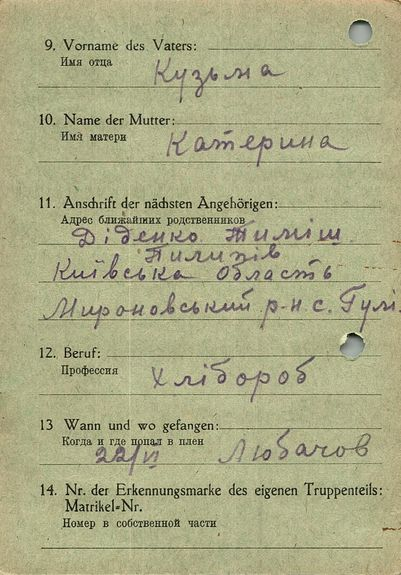 9. Vorname des Vaters:
Имя отца
Кузьма
10. Name der Mutter:
Имя матери
Катерина
11. Anschrift der nächsten Angehörigen:
Адрес ближайших родственников
Діденко Тиміш
Пилипів
Київська Область
Мироновський р-н с. Гулі.
12. Beruf:
Профессия
Хлібороб
13 Wann und wo gefangen:
Когда и где попал в плен
22/VI Любачов
14. Nr. der Erkennungsmarke des eigenen Truppenteils:
Matrikel-Nr.
Номер в собственной части